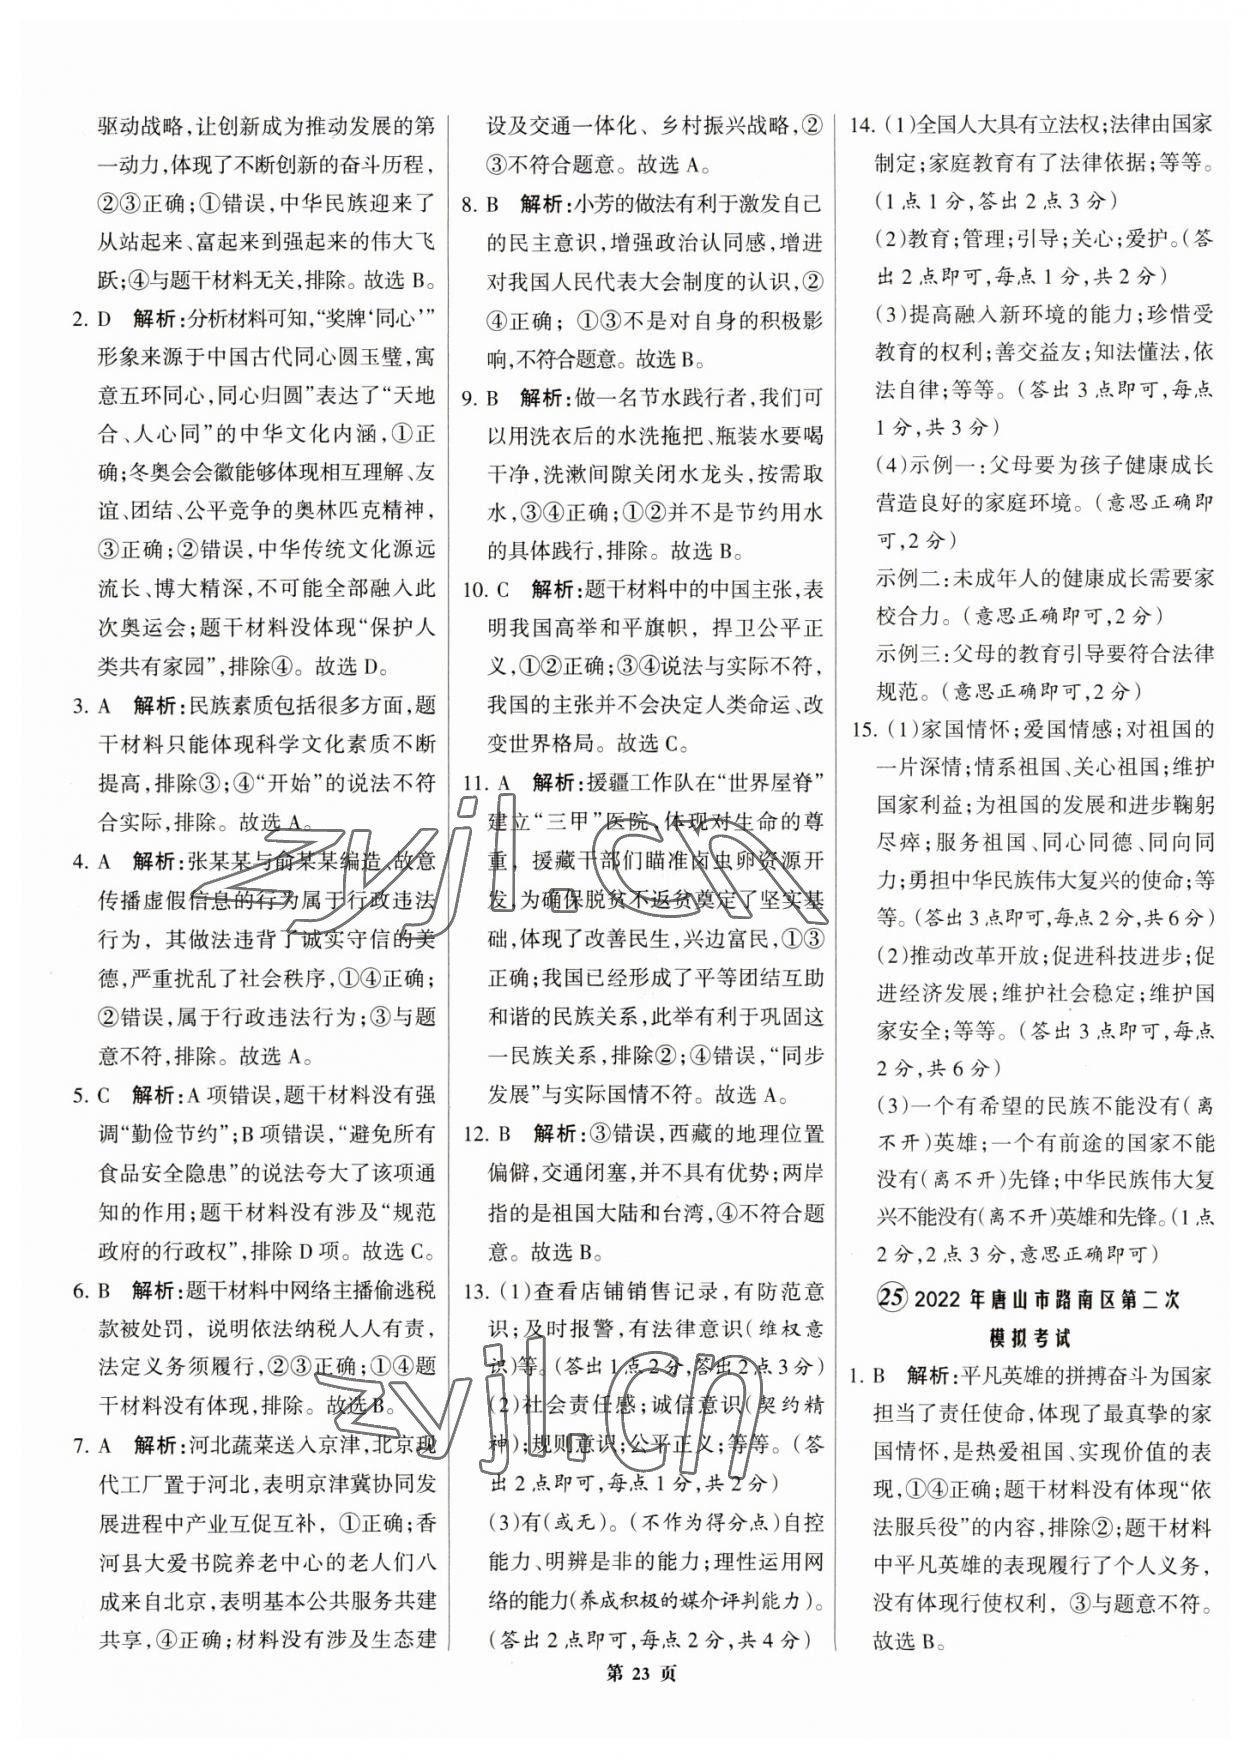 驱动战略,让创新成为推动发展的第
一动力,体现了不断创新的奋斗历程,
②③正确;①错误,中华民族迎来了
从站起来、富起来到强起来的伟大飞
跃;④与题干材料无关,排除。故选 B。
2. D 解析:分析材料可知,“奖牌‘同心’”
形象来源于中国古代同心圆玉璧,寓
意五环同心,同心归圆”表达了“天地
合、人心同”的中华文化内涵,①正
确;冬奥会会徽能够体现相互理解、友
谊、团结、公平竞争的奥林匹克精神,
③正确;②错误,中华传统文化源远
流长、博大精深,不可能全部融入此
次奥运会;题干材料没体现“保护人
类共有家园”,排除④。故选 D。
3. A 解析:民族素质包括很多方面,题
干材料只能体现科学文化素质不断
提高,排除③;④“开始”的说法不符
合实际,排除。故选 A。
4. A 解析:张某某与俞某某编造、故意
传播虚假信息的行为属于行政违法
行为,其做法违背了诚实守信的美
德,严重扰乱了社会秩序,①④正确;
②错误,属于行政违法行为;③与题
意不符,排除。故选 A。
5. C 解析:A 项错误,题干材料没有强
调“勤俭节约”;B 项错误,“避免所有
食品安全隐患”的说法夸大了该项通
知的作用;题干材料没有涉及“规范
政府的行政权”,排除 D 项。故选 C。
6. B 解析:题干材料中网络主播偷逃税
款被处罚,说明依法纳税人人有责,
法定义务须履行,②③正确;①④题
干材料没有体现,排除。故选 B。
7. A 解析:河北蔬菜送入京津,北京现
代工厂置于河北,表明京津冀协同发
展进程中产业互促互补,①正确;香
河县大爱书院养老中心的老人们八
成来自北京,表明基本公共服务共建
共享,④正确;材料没有涉及生态建
设及交通一体化、乡村振兴战略,②
③不符合题意。故选 A。
8. B 解析:小芳的做法有利于激发自己
的民主意识,增强政治认同感,增进
对我国人民代表大会制度的认识,②
④正确;①③不是对自身的积极影
响,不符合题意。故选 B。
9. B 解析:做一名节水践行者,我们可
以用洗衣后的水洗拖把、瓶装水要喝
干净,洗漱间隙关闭水龙头,按需取
水,③④正确;①②并不是节约用水
的具体践行,排除。故选 B。
10. C 解析:题干材料中的中国主张,表
明我国高举和平旗帜,捍卫公平正
义,①②正确;③④说法与实际不符,
我国的主张并不会决定人类命运、改
变世界格局。故选 C。
11. A 解析:援疆工作队在“世界屋脊”
建立“三甲”医院,体现对生命的尊
重,援藏干部们瞄准卤虫卵资源开
发,为确保脱贫不返贫奠定了坚实基
础,体现了改善民生,兴边富民,①③
正确;我国已经形成了平等团结互助
和谐的民族关系,此举有利于巩固这
一民族关系,排除②;④错误,“同步
发展”与实际国情不符。故选 A。
12. B 解析:③错误,西藏的地理位置
偏僻,交通闭塞,并不具有优势;两岸
指的是祖国大陆和台湾,④不符合题
意。故选 B。
13. (1)查看店铺销售记录,有防范意
识;及时报警,有法律意识(维权意
识)等。(答出1点2分,答出2点3分)
(2)社会责任感;诚信意识(契约精
神);规则意识;公平正义;等等。(答
出2点即可,每点1分,共2分)
(3)有(或无)。(不作为得分点)自控
能力、明辨是非的能力;理性运用网
络的能力(养成积极的媒介评判能力)。
(答出2点即可,每点2分,共4分)
14. (1)全国人大具有立法权;法律由国家
制定;家庭教育有了法律依据;等等。
(1点1分,答出2点3分)
(2)教育;管理;引导;关心;爱护。(答
出2点即可,每点1分,共2分)
(3)提高融入新环境的能力;珍惜受
教育的权利;善交益友;知法懂法,依
法自律;等等。(答出3点即可,每点
1分,共3分)
(4)示例一:父母要为孩子健康成长
营造良好的家庭环境。(意思正确即
可,2分)
示例二:未成年人的健康成长需要家
校合力。(意思正确即可,2分)
示例三:父母的教育引导要符合法律
规范。(意思正确即可,2分)
15. (1)家国情怀;爱国情感;对祖国的
一片深情;情系祖国、关心祖国;维护
国家利益;为祖国的发展和进步鞠躬
尽瘁;服务祖国、同心同德、同向同
力;勇担中华民族伟大复兴的使命;等
等。(答出3点即可,每点2分,共6分)
(2)推动改革开放;促进科技进步;促
进经济发展;维护社会稳定;维护国
家安全;等等。(答出3点即可,每点
2分,共6分)
(3)一个有希望的民族不能没有(离
不开)英雄;一个有前途的国家不能
没有(离不开)先锋;中华民族伟大复
兴不能没有(离不开)英雄和先锋。(1点
2分,2点3分,意思正确即可)
25 2022 年唐山市路南区第二次
模拟考试
1. B 解析:平凡英雄的拼搏奋斗为国家
担当了责任使命,体现了最真挚的家
国情怀,是热爱祖国、实现价值的表
现,①④正确;题干材料没有体现“依
法服兵役”的内容,排除②;题干材料
中平凡英雄的表现履行了个人义务,
没有体现行使权利,③与题意不符。
故选 B。
第 23 页
zyjl.cn
zyjl.cn